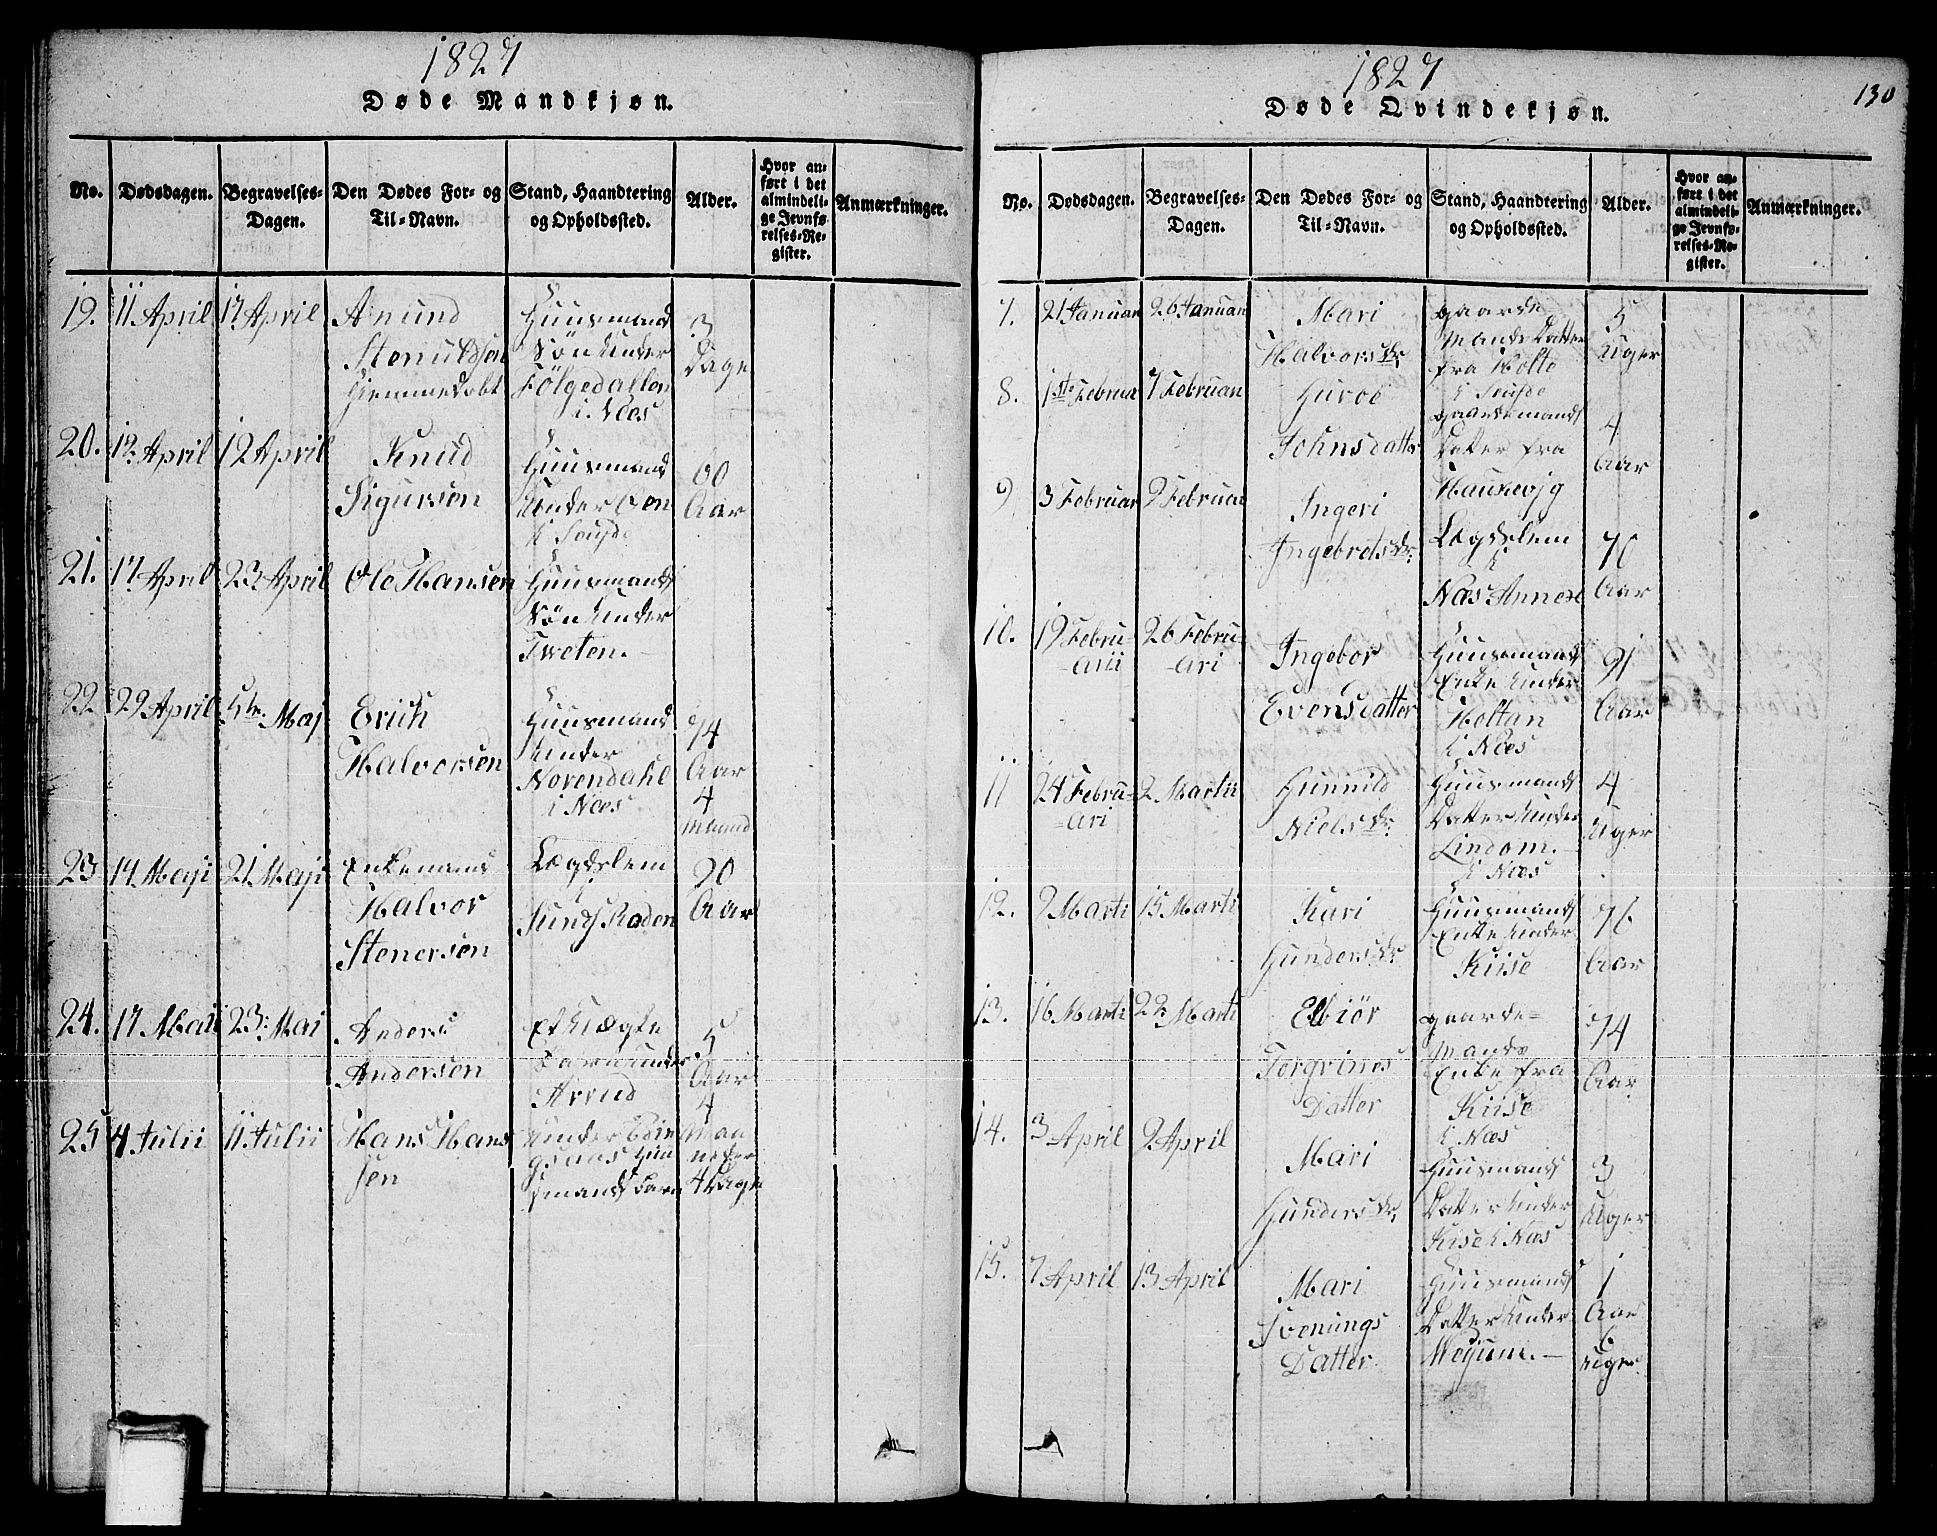 1827
Døde Mandkjøn.
No.
Dødsdagen.
Begravelses-
Dagen.
Den Dødes For- og
Til-Navn.
Stand, Haandtering
og Opholdssted.
Alder.
Hvor an-
ført i det
almindeli-
ge Jevnfø-
relses-Re-
gister.
Anmærkninger.
19. 11 April 17 April
Anund
Stenuldsen
Hiemmedøbt
Huusmand
Søn Under
Følgedallen
i Næs
3
Dage
20. 12 April 19 April
Knud
Sigursen
Huusmand
Under
i Soufde
60
Aar
21. 17 April 23 April
Ole Hansen
Huusmands
Søn Under
Tweten.
22 29 April 5te Maj
Erich
Halvorsen
Huusmand
Under
Norendahl
i Næs
74
Aar
4
Maand
23 14 Maji 21 Maji
Enkemand
Halvor
Stenersen
Lægdslem
i
Sunds Roden
90
Aar
24. 17 Maii 23: Mai
Anders
Andersen
Et Uægte
Barn under
Arnud
5
Aar
4
25 4 Julii 11 Julii
Hans Hans
sen
Under
Huu
smands Barn
Maa
neder
4 Dage
1827
130
Døde Qvindekjøn.
No.
Dødsdagen.
Begravelses-
Dagen.
Den Dødes For- og
Til-Navn.
Stand, Haandtering
og Opholdssted.
Alder.
Hvor an-
ført i det
almindeli-
ge Jevnfø-
relses-Re-
gister.
Anmærkninger.
7. 21 Januari 26 Januari
Mari
Halvors Dr
Gaard
Mands Datter
fra Holte
i Soufde
5
Uger
8. 1ste Februar 7 Februari
Guroe
Johnsdatter
Gaardemands
Datter fra
Haukevjg
4
Aar
9 3 Februar 9 Februari
Ingeri
Ingebrets Dr.
Lægdslem
i
Næs Annexe
70
Aar
10. 19 Febru-
arii
26 Febru-
ari
Ingebor
Evensdatter
Huusmands
Enke Under
Holtan
i Næs
91
Aar
11 24 Febru-
ari
2 Martii
Gunnild
Niels Dr.
Huusmands
Datter Under
Lindom.
i Næs
4
Uger
12. 9 Marti 15 Marti
Kari
Gunders Dr.
Huusmands
Enke Under
Kiise
76
Aar
13. 16 Marti 22 Marti
Elbiør
Torgrimes
Datter
gaarde-
Mands
Enke fra
Kiise
i Næs
74
Aar
14. 3 April 9 April
Mari
Gunders Dr,
Huusmands
Datter Under
Kise i Næs
3
Uger
15. 7 April 13 April
Mari
Svenings
Datter
Huusmands
Datter Under
1
Aar
6
uger